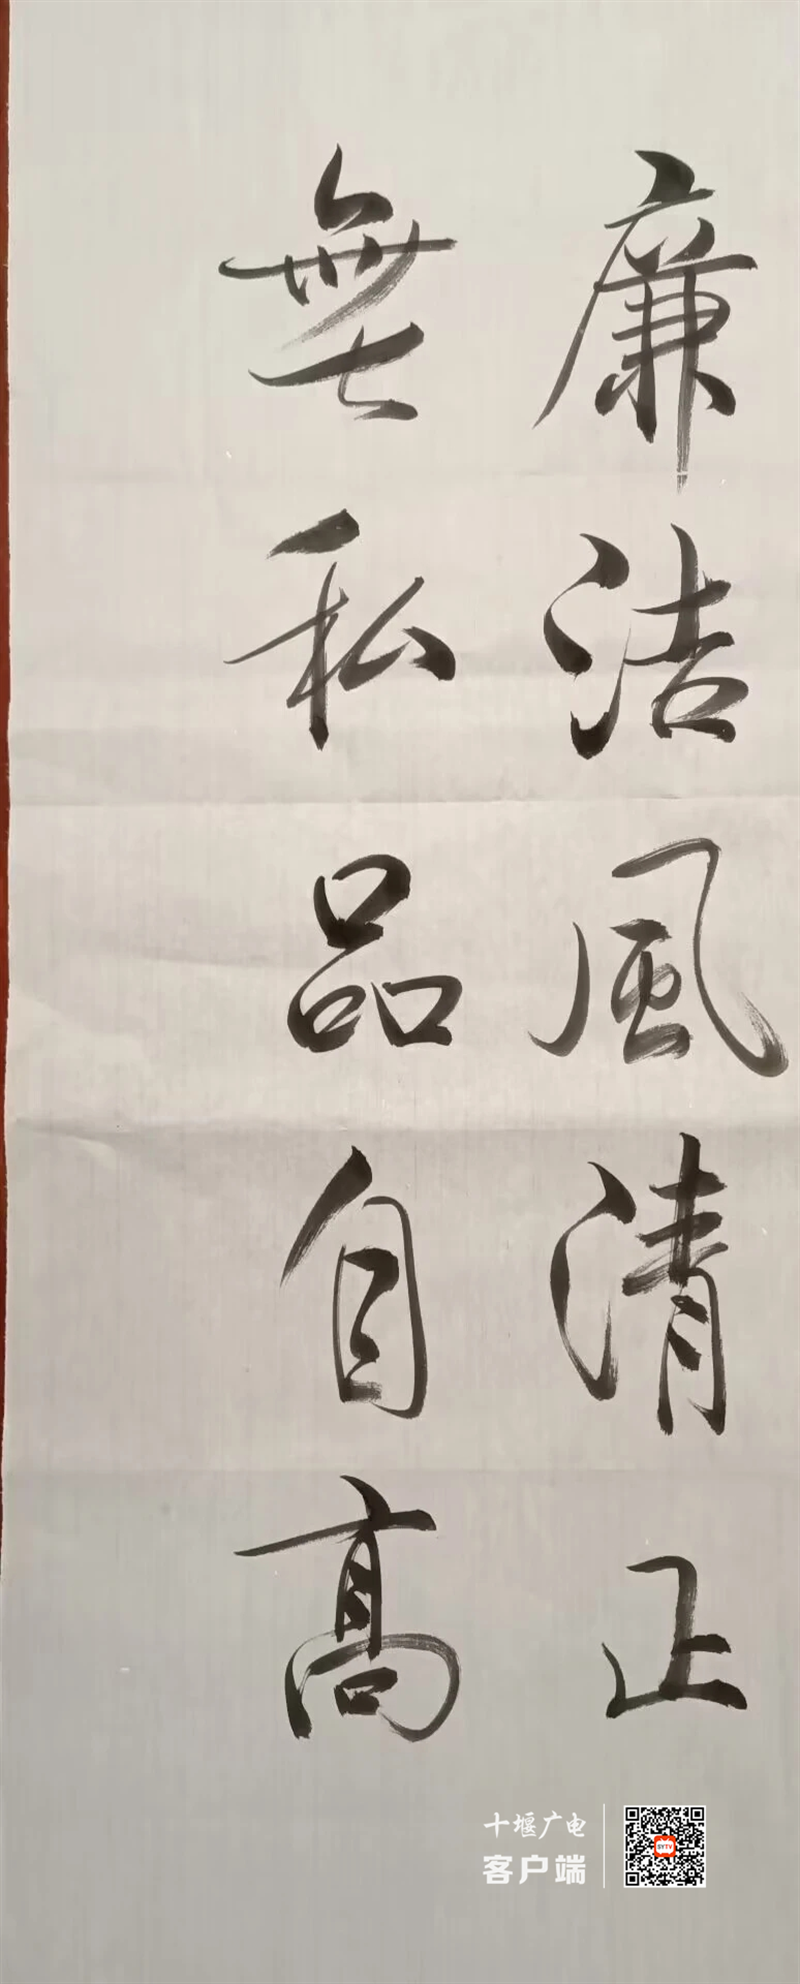 廉洁風清正
無私品自高
十堰广电
客户端
SYTV